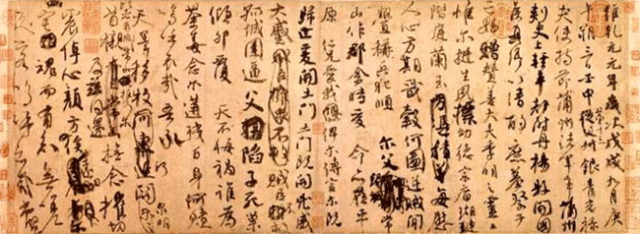 維乾元元年歲次戊戌九月庚
午朔三日壬申第十三叔銀青光祿
夫使持節蒲州諸軍事蒲州
刺史上輕車都尉丹楊縣開國
侯真卿以清酌庶羞祭于
亡姪贈贊善大夫季明之靈曰
惟爾挺生夙標幼德宗廟瑚璉
階庭蘭玉每慰
人心方期戩穀何圖逆賊閒
釁稱兵犯順爾父
山作郡余時受命亦在平
原仁兄愛我俾爾傳言爾既
歸止爰開土門土門既開兇威
大蹙賊臣不救
孤城圍逼父陷子死巢
傾卵覆天不悔禍誰為
荼毒念爾遘殘百身何贖
嗚乎哀哉吾承
天澤移牧河關爾明
首櫬及茲同還撫念摧切
震悼心顏方俟
魂而有知無嗟
久客嗚呼哀哉尚饗